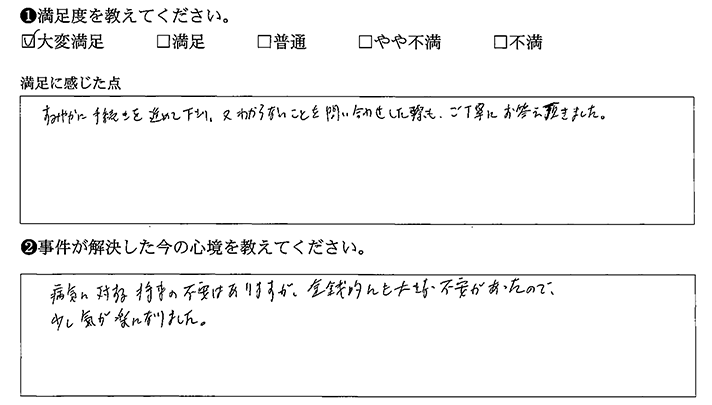 ❶満足度を教えてください。
☑大変満足 □満足 □普通 □やや不満 □不満
満足に感じた点
すみやかに手続きを進めて下さり、又わからないことを問い合わせした際も、ご丁寧にお答え頂きました。
❷事件が解決した今の心境を教えてください。
病気に対する将来の不安はありますが、金銭的にも大きな不安があったので、
少し気が楽になりました。